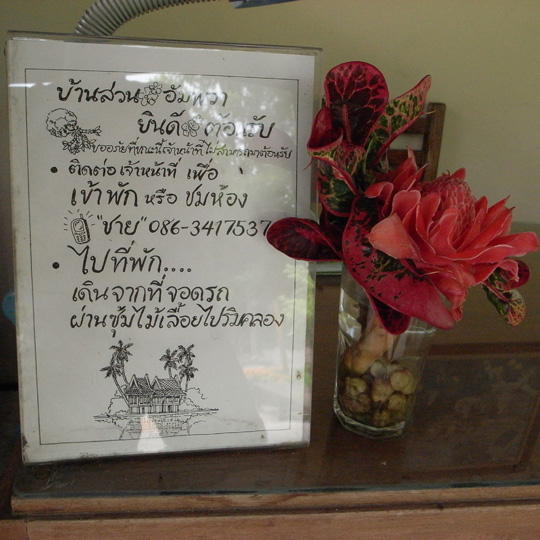 บ้านสวน อัมพวา
ยินดี ต้อนรับ
ขออภัยที่ขณะนี้เจ้าหน้าที่ไม่สามารถมาต้อนรับ
• ติดต่อเจ้าหน้าที่ เพื่อ
เข้าพัก หรือ ชมห้อง
"ชาย" 086-3417537
• ไปที่พัก....
เดินจากที่จอดรถ
ผ่านซุ้มไม้เลื้อยไปริมคลอง